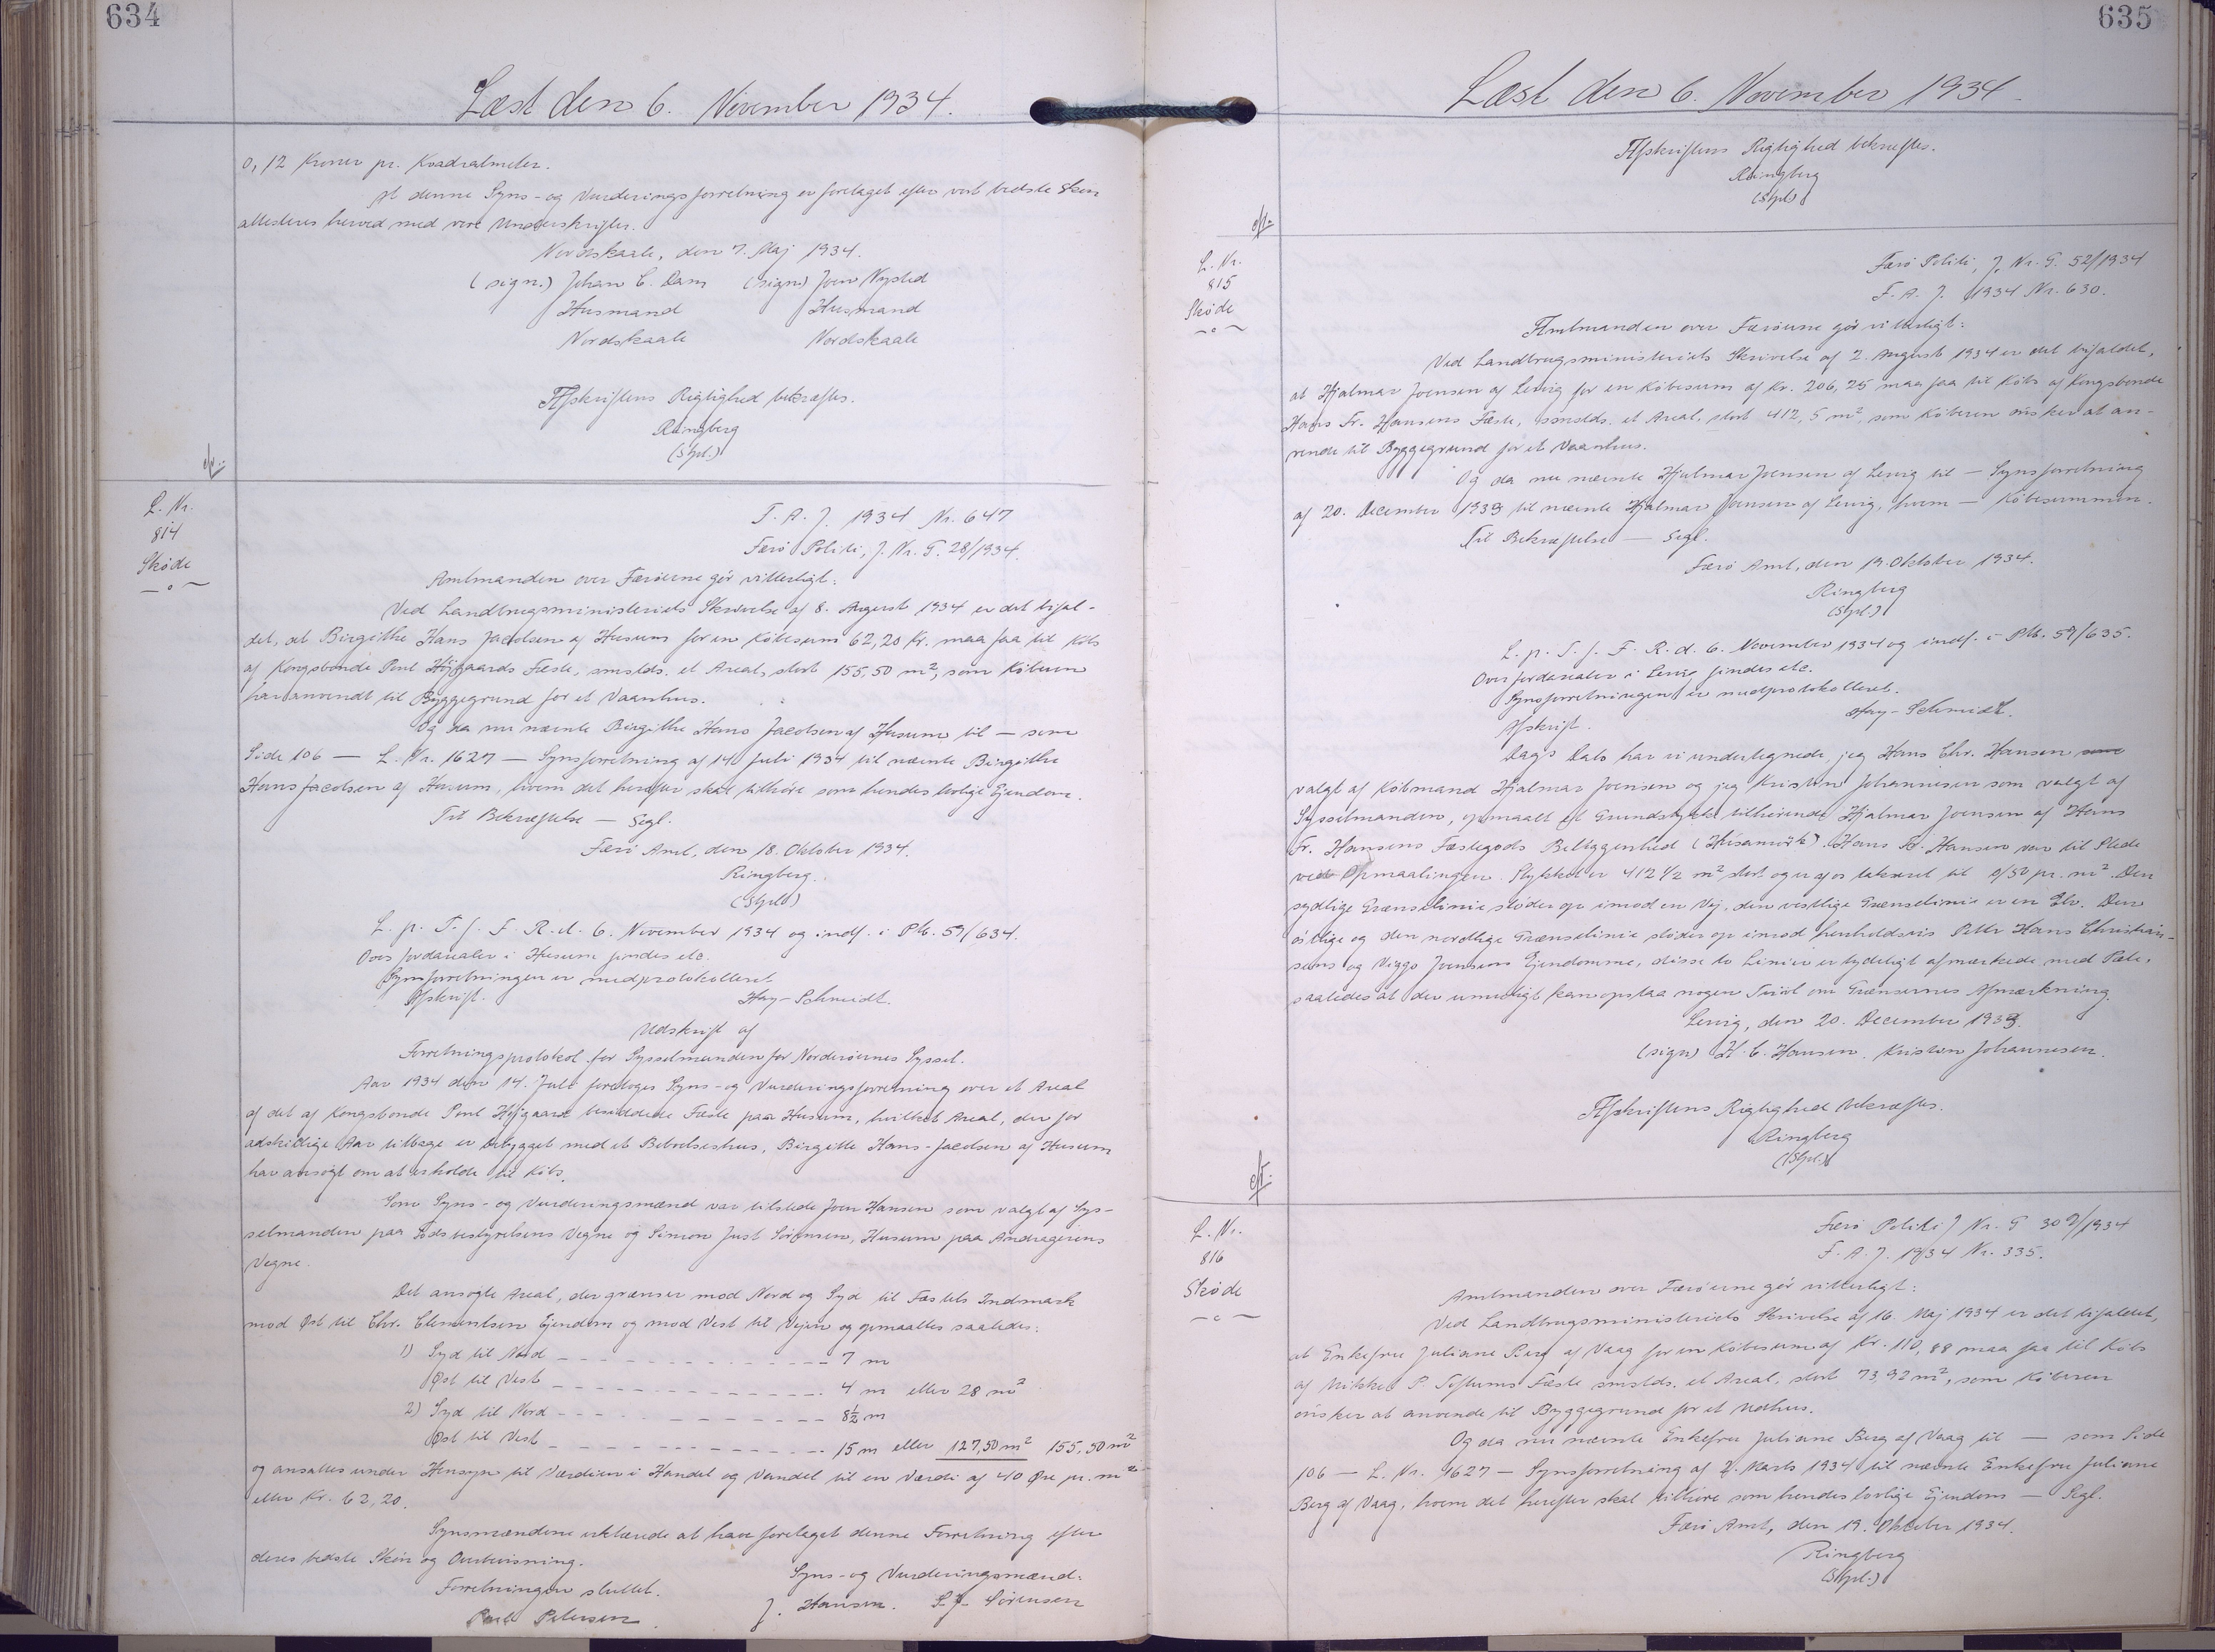 634
Læst den 6. November 1934.
0,12 Kroner pr. Kvadratmeter.
At denne Syns- og Vurderingsforretning er foretaget efter vort bedste Skøn
attesteres herved med vore Underskrifter.
Nordskaale, den 7. Maj 1934.
(sign.) Johan C. Dam (sign) Joen Nysted
Husmand Husmand
Nordskaale Nordskaale
Afskriftens Rigtighed bekræftes.
Ringberg
(Stpl.)
L. Nr.
814
Skøde
F. A. J. 1934 Nr. 647
Færö Politi, J. Nr. G. 28/1934.
Amtmanden over Færöerne gör vitterligt:
Ved Landbrugsministeriets Skrivelse af 8. August 1934 er det bifal-
det, at Birgithe Hans Jacobsen af Husum for en Köbesum 62,20 Kr. maa faa til Köbs
af Kongsbonde Poul Höjgaards Fæste, smstds. et Areal, stort 155,50 m², som Köberen
har anvendt til Byggegrund for et Vaanhus.
Og da nu nævnte Birgithe Hans Jacobsen af Husum til — som
Side 106 — L. Nr. 1627 — Synsforretning af 14 Juli 1934 til nævnte Birgithe
Hans Jacobsen af Husum, hvem det herefter skal tilhöre som hendes lovlige Ejendom.
Til Bekræftelse — Segl.
Færö Amt, den 18. Oktober 1934.
Ringberg.
(Stpl.)
L. p. T. f. F. R. d. 6. November 1934 og indf. i Ptk. 59/634.
Over Jordarealer i Husum findes etc.
Synsforretningen er medprotokolleret
Afskrift. Hay-Schmidt.
Udskrift af
Forretningsprotokol for Sysselmanden for Norderöernes Syssel.
Aar 1934 den 14. Juli foretoges Syns- og Vurderingsforretning over et Areal
af det af Kongsbonde Poul Höjgaard besiddede Fæste paa Husum, hvilket Areal, der for
adskillige Aar tilbage er bebygget med et Beboelseshus, Birgitte Hans-Jacobsen af Husum
har ansögt om at erholde til Köbs.
Som Syns- og Vurderingsmænd var tilstede Joen Hansen som valgt af Sys-
selmanden paa Jordsbestyrelsens Vegne og Simon Just Sörensen, Husum paa Andragerens
Vegne.
Det ansögte Areal, der grænser mod Nord og Syd til Fæstets Indmark
mod Øst til Chr. Clementsen Ejendom og mod Vest til Vejen og opmaaltes saaledes:
1) Syd til Nord - - - - - 7 m
Øst til Vest - - - - - 4 m eller 28 m²
2) Syd til Nord - - - - - 8½ m
Øst til Vest - - - - - 15 m eller 127,50 m² 155,50 m²
og ansattes under Hensyn til Værdien i Handel og Vandel til en Værdi af 40 Øre pr. m²
eller Kr. 62,20.
Synsmændene erklærede at have foretaget denne Forretning efter
deres bedste Skön og Overbevisning.
Forretningen sluttet. Syns- og Vurderingsmænd:
Poul Petersen. J. Hansen. S. J. Sörensen
635
Læst den 6. November 1934.
Afskriftens Rigtighed bekræftes.
Ringberg
(Stpl.)
L. Nr.
815
Skøde
Færö Politi, J. Nr. G. 52/1934
F. A. J. 1934 Nr. 630.
Amtmanden over Færöerne gör vitterligt:
Ved Landbrugsministeriets Skrivelse af 2. August 1934 er det bifaldet,
at Hjalmar Joensen af Lervig for en Köbesum af Kr. 206,25 maa faa til Köbs af Kongsbonde
Hans Fr. Hansens Fæste, smstds. et Areal, stort 412,5 m², som Köberen önsker at an-
vende til Byggegrund for et Vaanhus.
Og da nu nævnte Hjalmar Joensen af Lervig til — Synsforretning
af 20. December 1933 til nævnte Hjalmar Joensen af Lervig, hvem — Köbesummen.
Til Bekræftelse — Segl.
Færö Amt, den 19. Oktober 1934.
Ringberg
(Stpl.)
L. p. T. f. F. R. d. 6. November 1934 og indf. i Ptk. 59/635.
Over Jordarealer i Lervig findes etc.
Synsforretningen er medprotokolleret.
Afskrift. Hay-Schmidt.
Dags Dato har vi undertegnede, jeg Hans Chr. Hansen som
valgt af Köbmand Hjalmar Joensen og jeg Kristen Johannesen som valgt af
Sysselmanden, opmaalt et Grundstykke tilhörende Hjalmar Joensen af Hans
Fr. Hansens Fæstegods Beliggenhed (Húsamörk). Hans Fr. Hansen var til Stede
ved Opmaalingen. Stykket er 412 ½ m² stort og er af os takseret til 0/50 pr. m². Den
sydlige Grænselinie støder op imod en Vej, den vestlige Grænselinie er en Elv. Den
östlige og den nordlige Grænselinie støder op imod henholdsvis Petter Hans Christian-
sens og Viggo Joensens Ejendomme, disse to Linier er tydeligt afmærkede med Pæle,
saaledes at der umuligt kan opstaa nogen Tvivl om Grænsernes Afmærkning.
Lervig, den 20. December 1933.
(sign) H. C. Hansen. Kristen Johannesen.
Afskriftens Rigtighed bekræftes.
Ringberg
(Stpl.)
L. Nr.
816
Skøde
Færö Politi J Nr. G 309/1934
F. A. J. 1934 Nr. 335.
Amtmanden over Færöerne gör vitterligt:
Ved Landbrugsministeriets Skrivelse af 16. Maj 1934 er det bifaldet,
at Enkefru Juliane Berg af Vaag for en Köbesum af Kr. 110,88 maa faa til Köbs
af Mikkel P. Toftums Fæste smstds. et Areal, stort 73,92 m², som Köberen
önsker at anvende til Byggegrund for et Udhus.
Og da nu nævnte Enkefru Juliane Berg af Vaag til — som Side
106 — L. Nr. 1627 — Synsforretning af 2. Marts 1934 til nævnte Enkefru Juliane
Berg af Vaag, hvem det herefter skal tilhöre som hendes lovlige Ejendom — Segl.
Færö Amt, den 19. Oktober 1934.
Ringberg
(Stpl.)